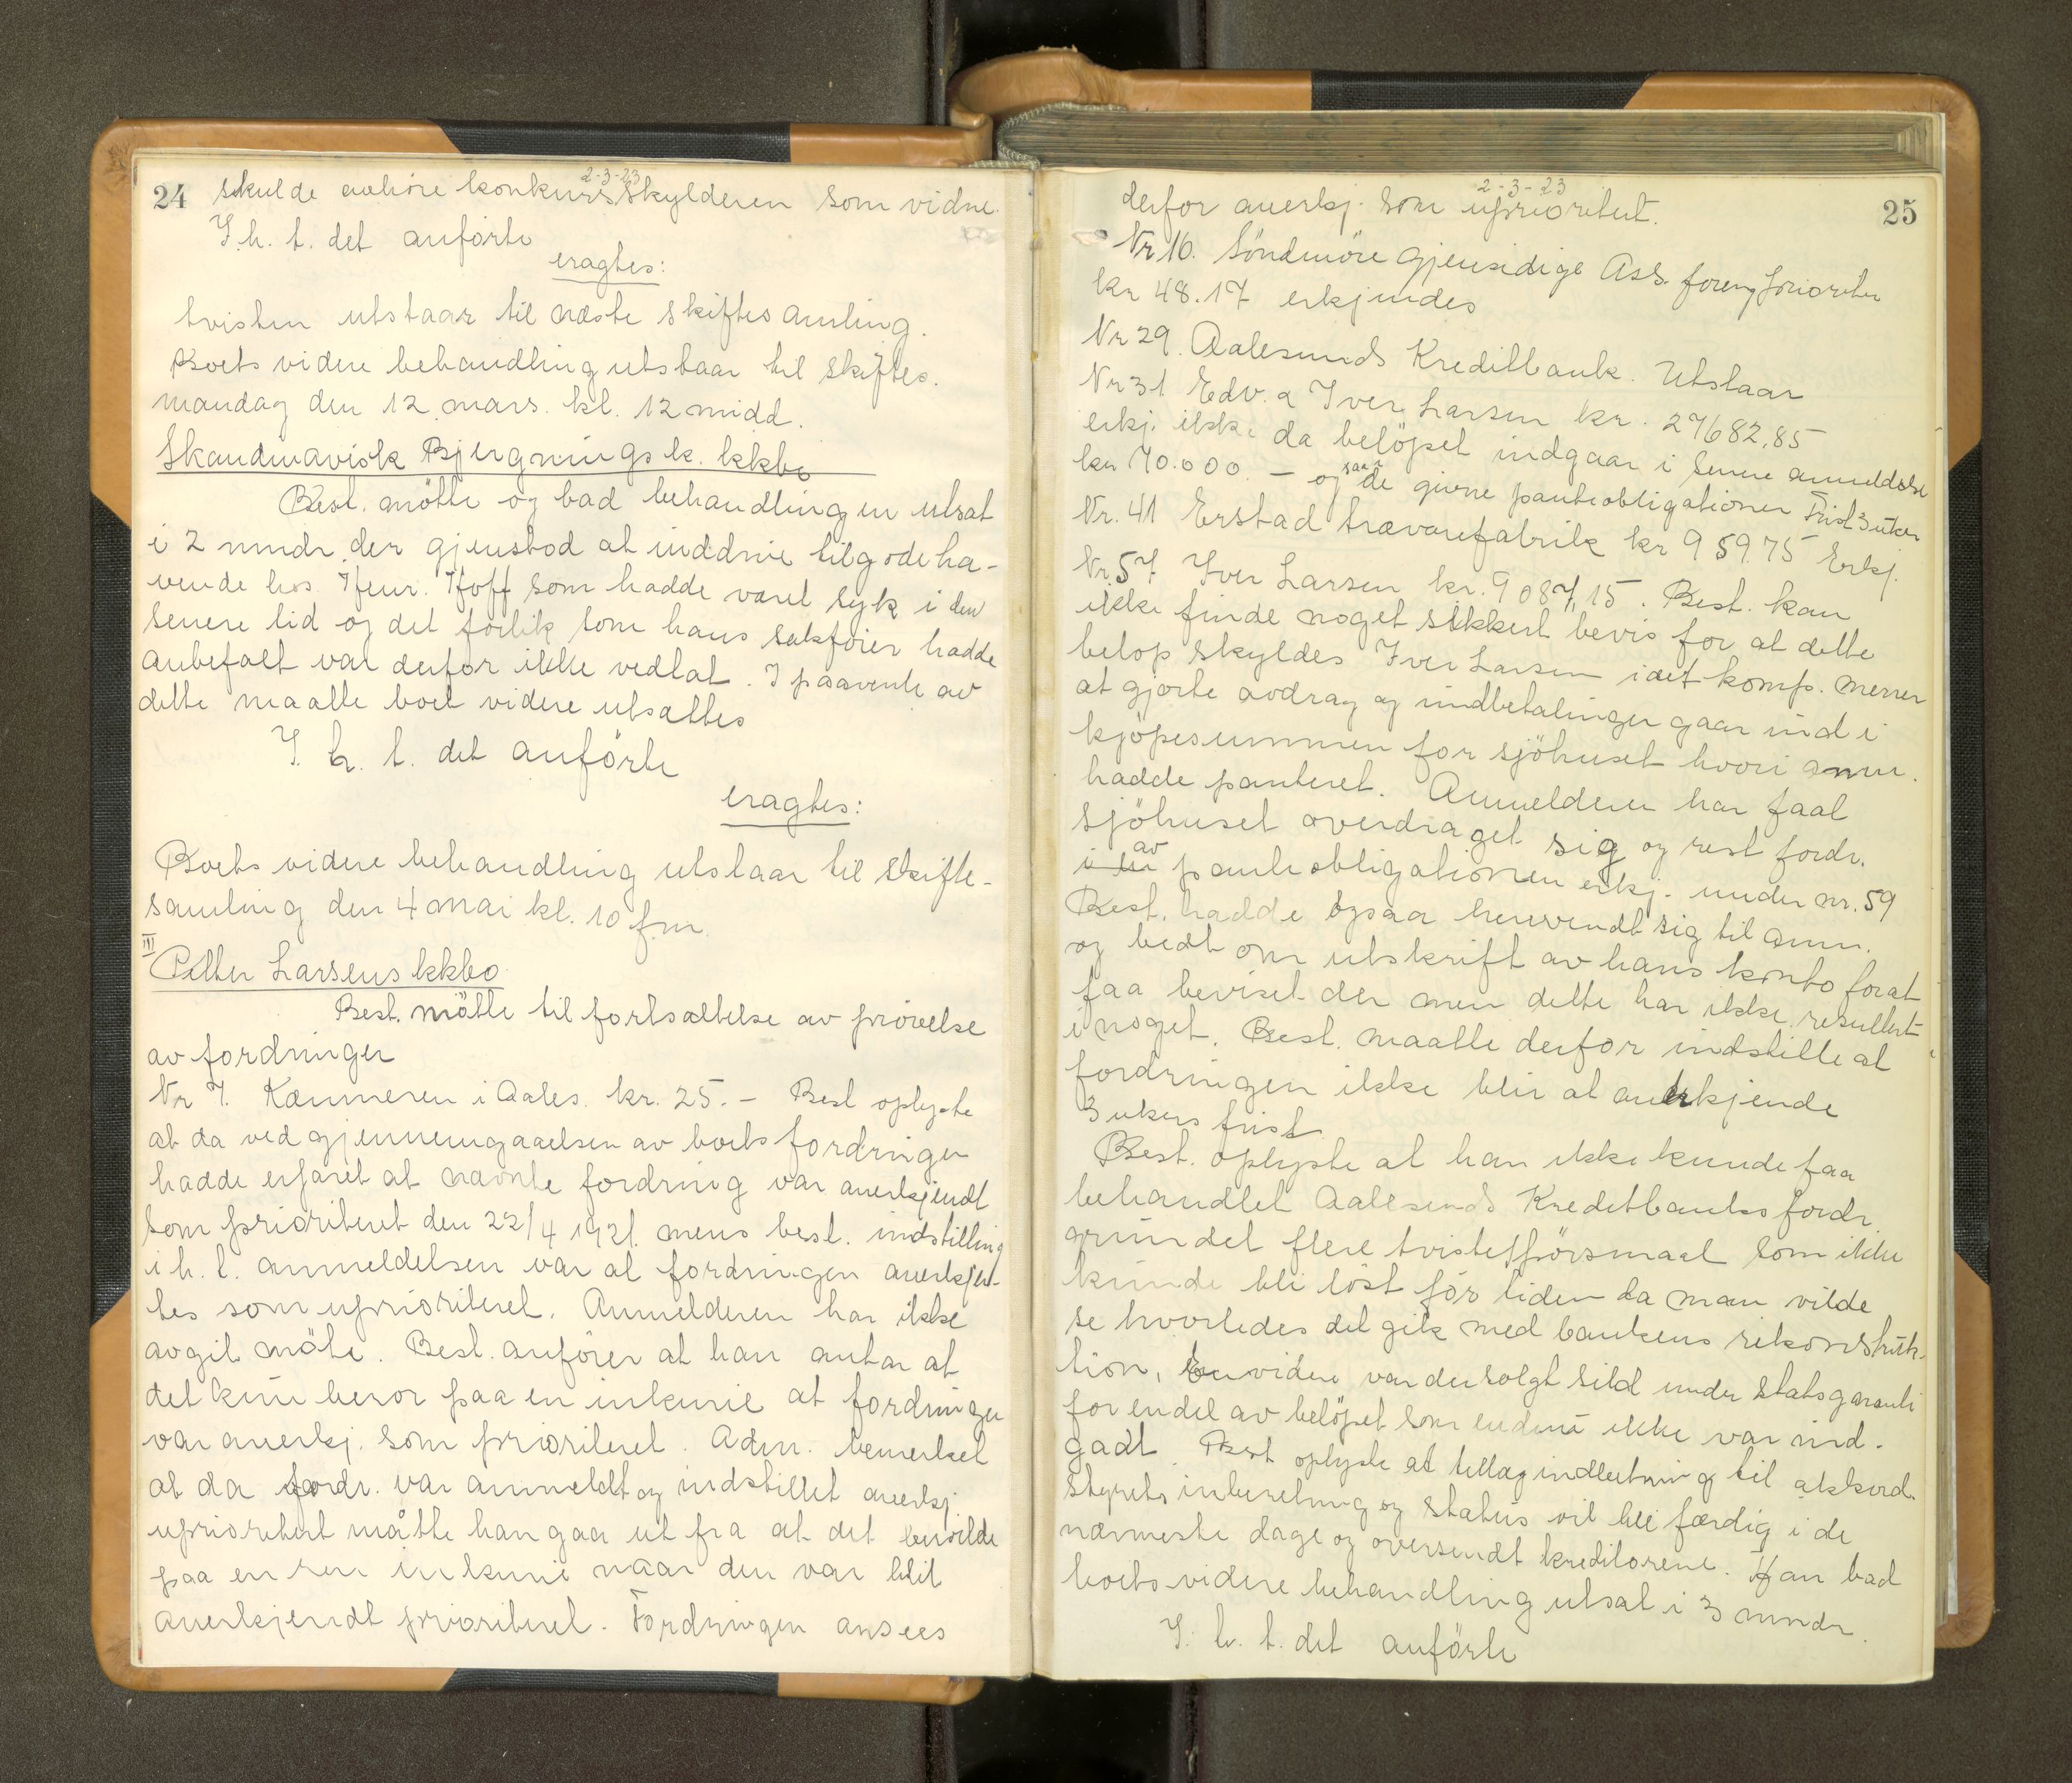 24
2-3-23
skulde avhöre konkursskylderen som vidne.
I h. t. det anförte
eragtes:
tvisten utstaar til næste skiftesamling.
Boets videre behandling utstaar til skiftes.
mandag den 12 mars. kl. 12 midd.
Skandinavisk Bjergningsk. kkbo
Best. mötte og bad behandlingen utsat
i 2 mndr. der gjenstod at inddrive tilgodeha-
vende hos Henr. Hoff som hadde været syk i den
senere tid og det forlik som hans sakförer hadde
anbefalt var derfor ikke vedtat. I paavente av
dette maatte boet videre utsættes
I. h. t. det anförte
eragtes:
Boets videre behandling utstaar til skifte-
samling den 4 mai kl. 10 fm.
III
Petter Larsens kkbo
Best. mötte til fortsættelse av prövelse
av fordringer
Nr 7. Kæmneren i Aales. kr. 25.- Best oplyste
at da ved gjennemgaaelsen av boets fordringer
hadde erfaret at nævnte fordring var anerkjendt
som prioriteret den 22/4 1921. mens best. indstilling
i h. t. anmeldelsen var at fordringen anerkjen-
tes som uprioriteret. Anmelderen har ikke
avgit möte. Best. anförer at han antar at
det kun beror paa en inkurie at fordringen
var anerkj. som prioriteret. Adm. bemerket
at da fordr. var anmeldt og indstillet anerkj
uprioritert måtte han gaa ut fra at det
paa en ren inkurie naar den var blit
anerkjendt prioriteret. Fordringen ansees
25
2-3-23
derfor anerkj. som uprioritert.
Nr 16. Söndmöre Gjensidige Ass. foreng prioritert
kr 48.17 erkjendes
Nr 29. Aalesunds Kreditbank. Utstaar
Nr 31 Edv. & Iver Larsen kr. 27682.85
erkj. ikke da belöpet indgaar i senere anmeldelse
kr 70.000.- og de givne panteobligationer Frist 3 uker
Nr. 41 Erstad trævarefabrik kr 959.75 Erkj.
Nr. 57 Iver Larsen kr. 9087,15. Best. kan
ikke finde noget sikkert bevis for at dette
belöp skyldes Iver Larsen idet komp. mener
at gjorte avdrag og indbetalinger gaar ind i
kjöpesummen for sjöhuset hvori anm.
hadde panteret. Anmelderen har faat
sjöhuset overdraget sig og rest fordr.
av
panteobligationen erkj. under nr. 59
Best. hadde ogsaa henvendt sig til anm.
og bedt om utskrift av hans konto forat
faa beviset der men dette har ikke resultert
i noget. Best. maatte derfor indstille at
fordringen ikke blir at anerkjende
3 ukers frist
Best. oplyste at han ikke kunde faa
behandlet Aalesunds Kreditbanks fordr.
grundet flere tvistespörsmaal som ikke
kunde bli löst för tiden da man vilde
se hvorledes det gik med bankens rekonstruk-
tion, Envidere var der solgt sild under statsgaranti
for endel av belöpet som endnu ikke var ind-
gaat. Best oplyste at tillægindberetning til akkord-
styrets inberetning og status vil bli færdig i de
nærmeste dage og oversendt kreditorene. Han bad
boets videre behandling utsat i 3 mndr.
I. h. t. det anförte